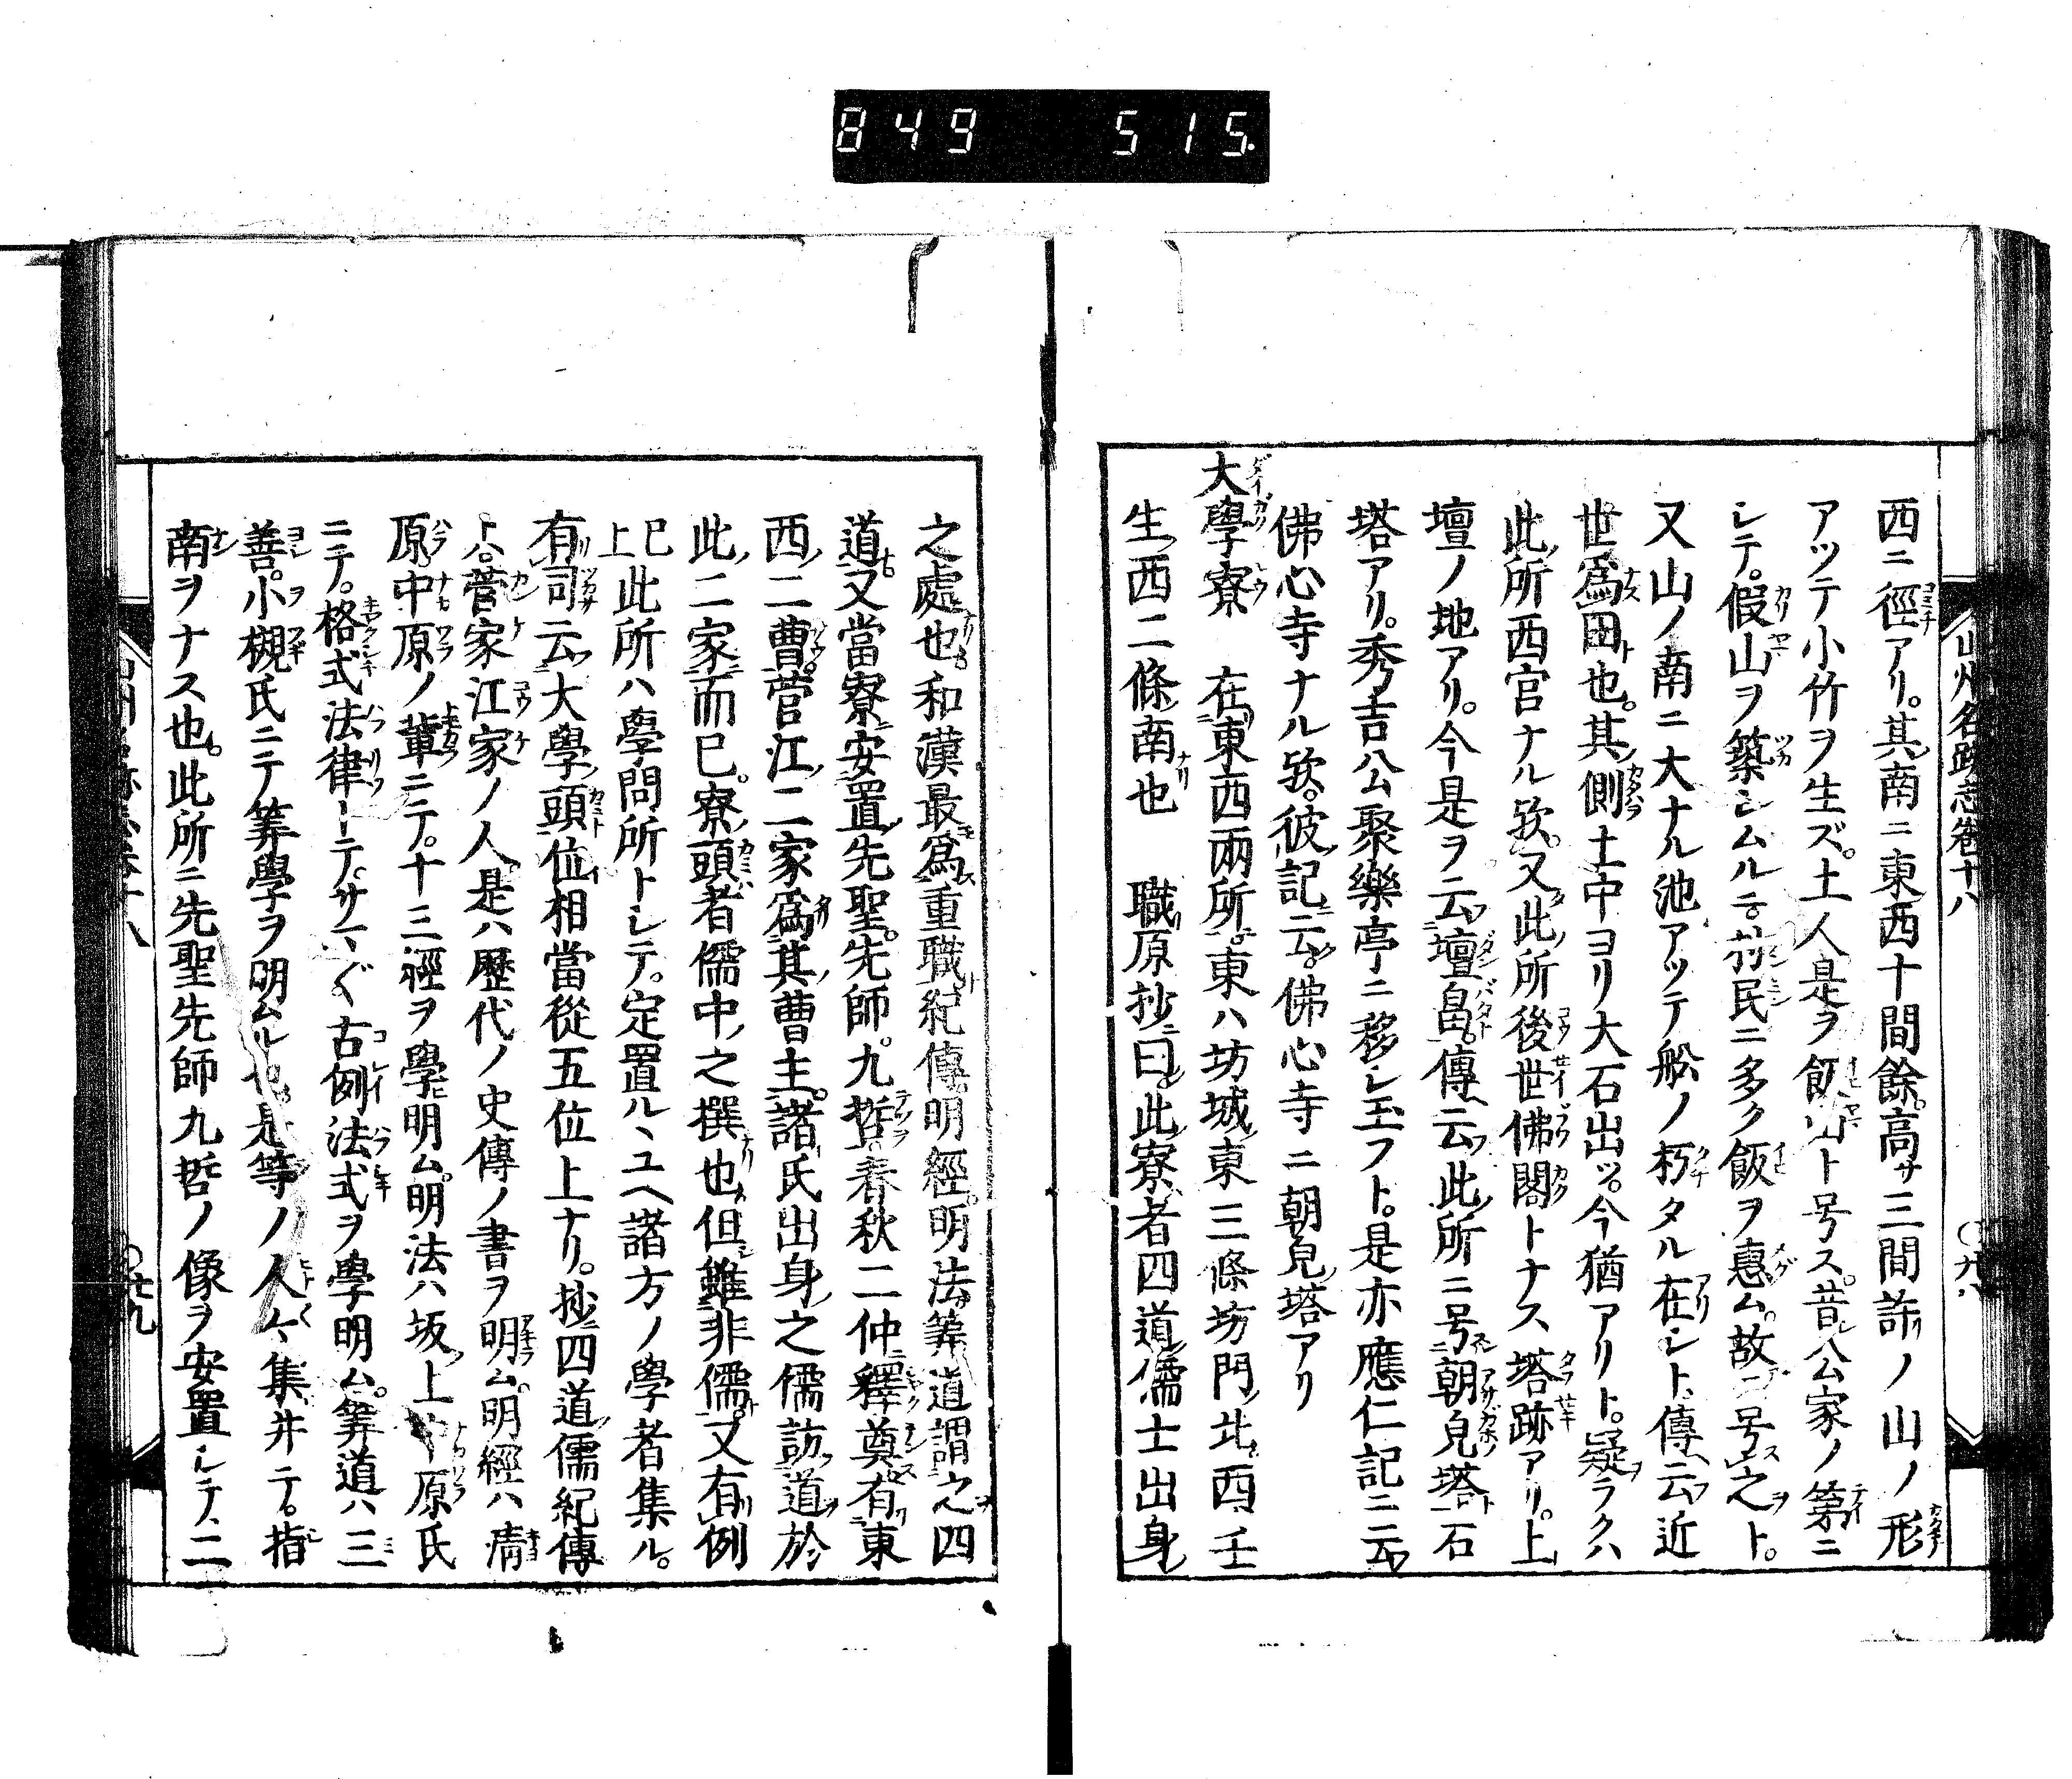 849 515.
山州名跡志卷十八
西ニ徑アリ。其南ニ東西十間餘。高サ三間許ノ山ノ形
アツテ小竹ヲ生ズ。土人是ヲ飯山ト号ス。昔公家ノ第ニ
シテ。假山ヲ築シムルニ。村民ニ多ク飯ヲ惠ム。故ニ号之ト。
又山ノ南ニ大ナル池アツテ舩ノ朽タル在シト、傳云フ近
世爲田也。其側土中ヨリ大石出ツ。今猶アリト。疑ラクハ
此所西宮ナル歟。又此所後世佛閣トナス、塔跡アリ。上
壇ノ地アリ。今是ヲ云壇畠。傳云此所ニ号朝皃塔石
塔アリ。秀吉公聚樂亭ニ移シ玉フト。是亦應仁記ニ云
佛心寺ナル歟。彼記ニ云。佛心寺ニ朝皃塔アリ
大學寮 在東西兩所。東ハ坊城東三條坊門北。西壬
生西二條南也 職原抄ニ曰。此寮者四道儒士出身
之處也和漢最爲重職紀傳。明經。明法。筭道謂之四
道又當寮安置先聖。先師。九哲。春秋二仲釋奠有東
西二曹。菅江二家爲其曹主。諸氏出身之儒訪道於
此二家而已。寮頭者儒中之撰也但雖非儒。又有例
已上 此所ハ學問所トシテ。定置ル、ユヘ諸方ノ學者集ル。
有司云大學頭位相當從五位上ナリ。抄四道儒紀傳
トハ。菅家江家ノ人是ハ歷代ノ史傳ノ書ヲ明ム。明經ハ清
原。中原ノ輩ニテ。十三經ヲ學明ム。明法ハ坂上中原氏
ニテ。格式法律ーテ。サマ〲古例法式ヲ學明ム。筭道ハ三
善。小槻氏ニテ筭學ヲ明ムル也。是等ノ人々集井テ。指
南ヲナス也。此所ニ先聖先師九哲ノ像ヲ安置シテ、二